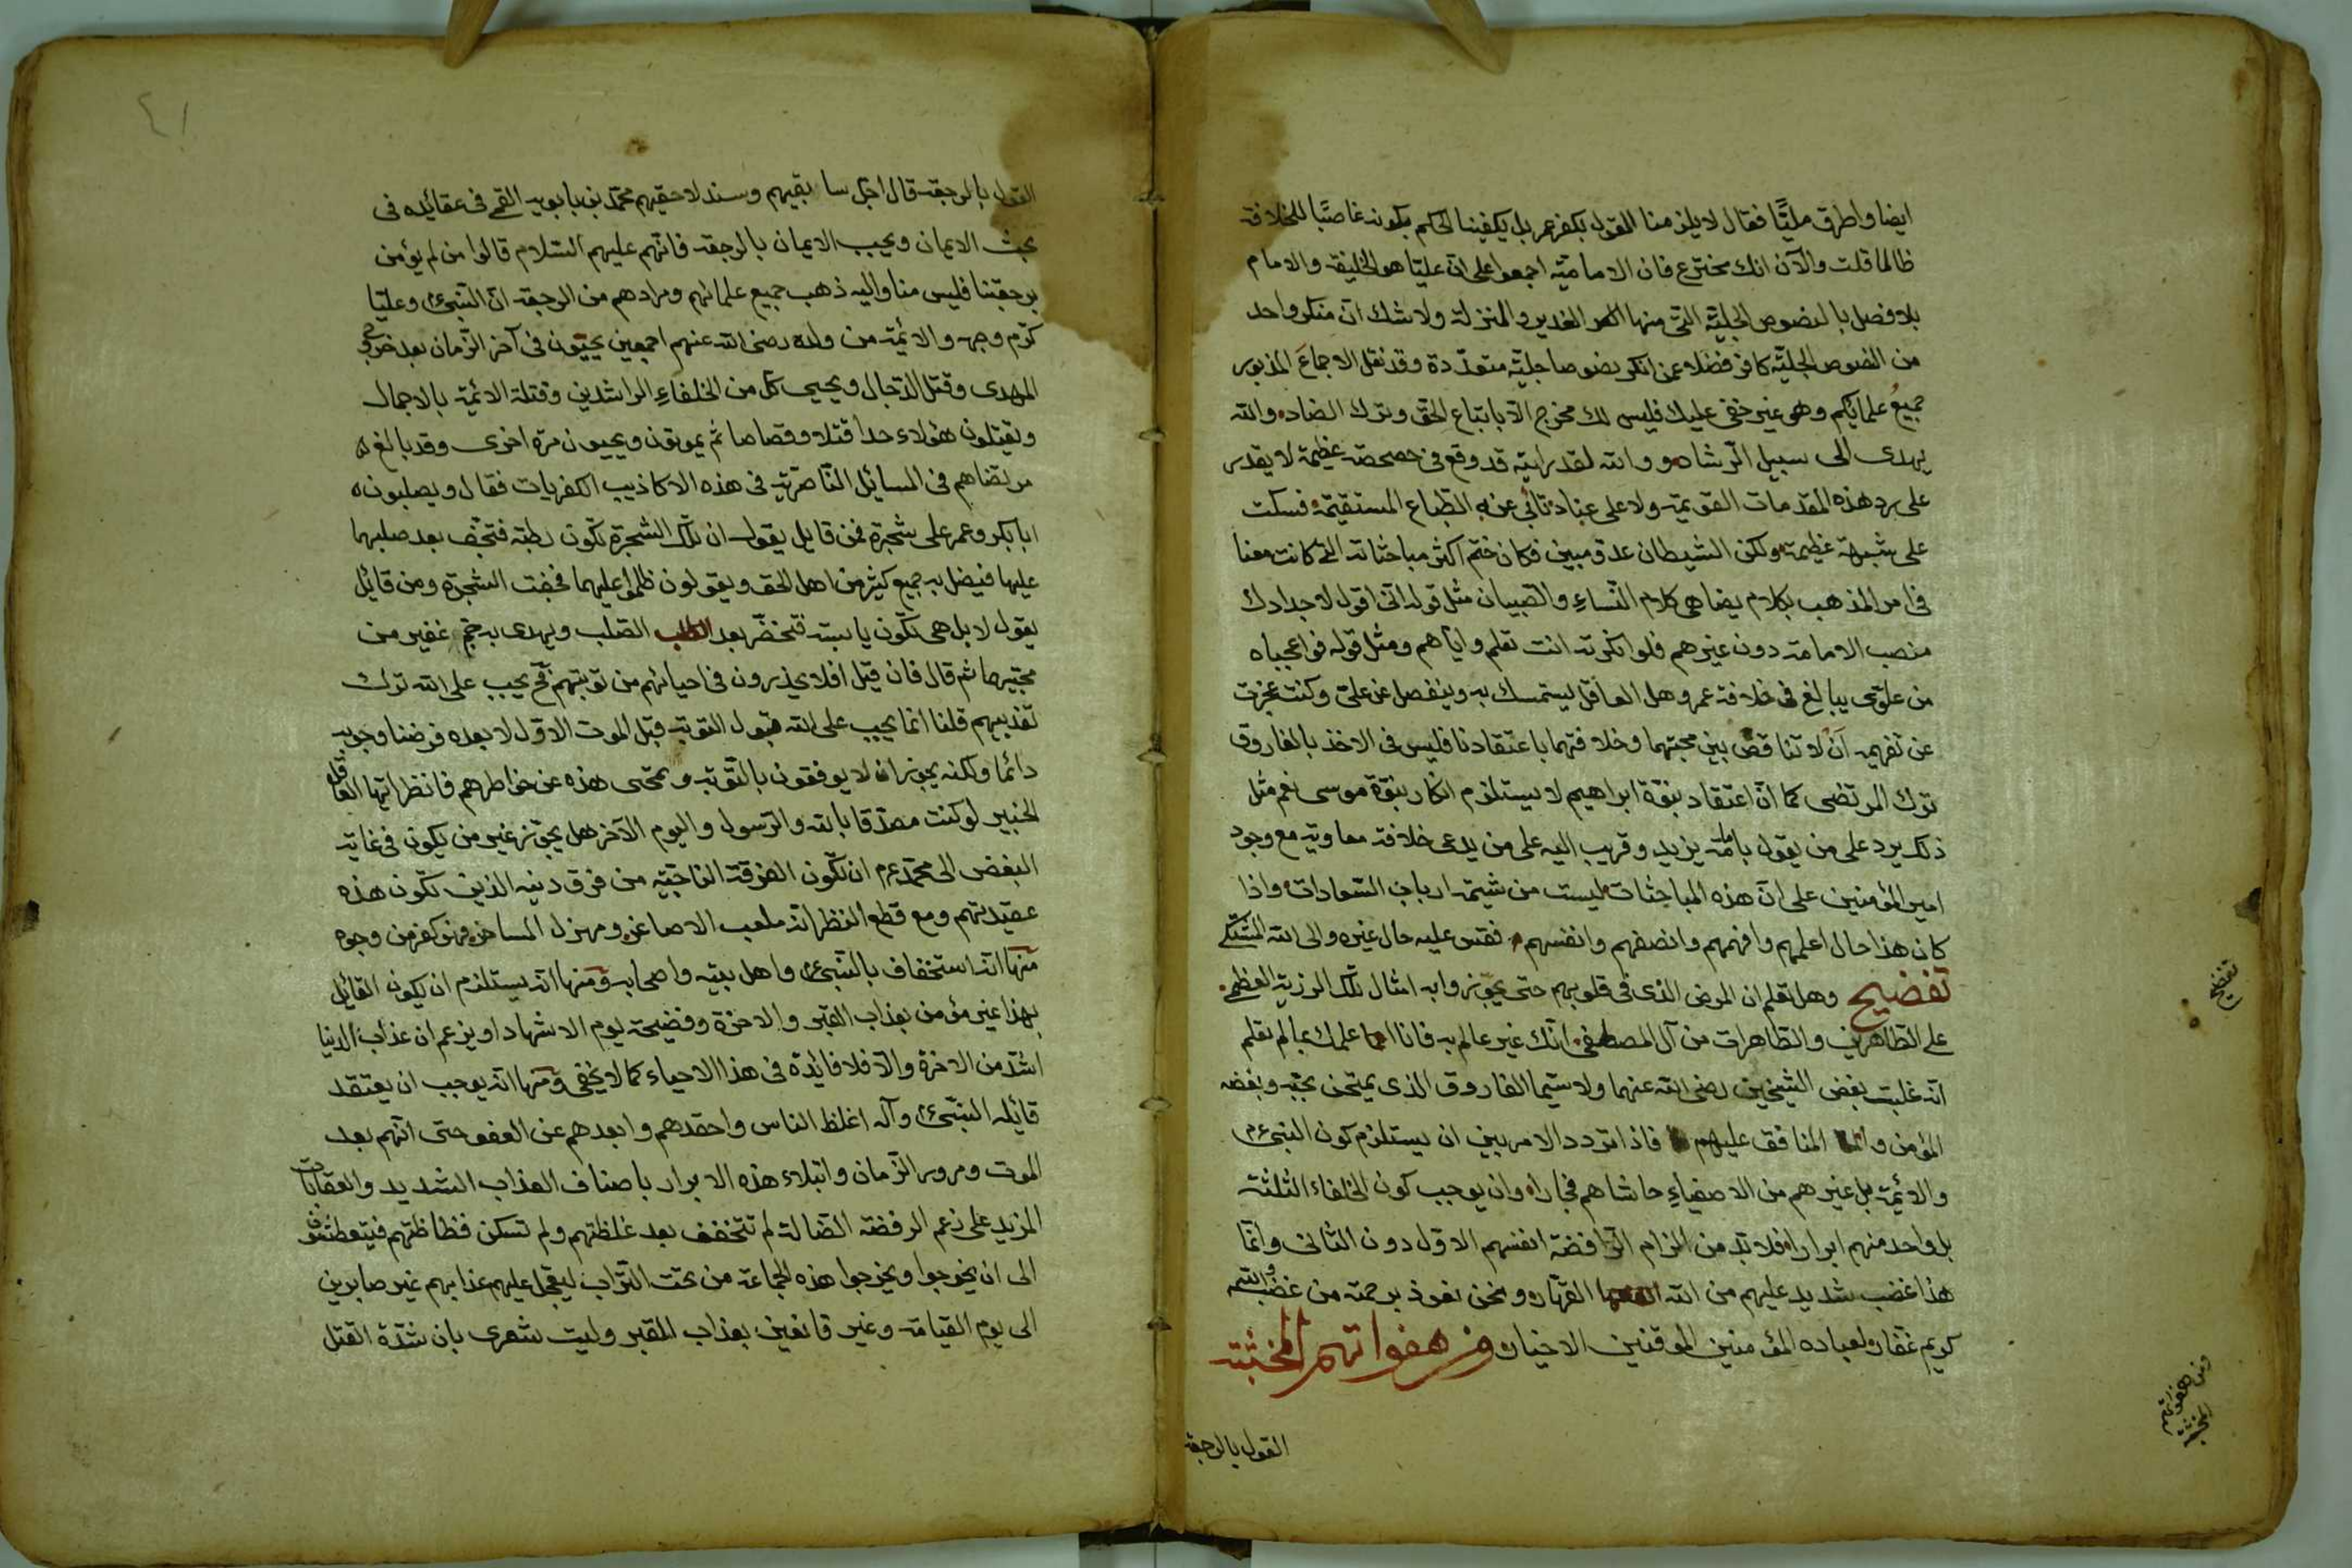 ايضا واطرق مليّا فقال لا يلزمنا القول بكفرهم بل يكفينا الحكم بكونه غاصبًا للخلافة
ظالما قلت والآن انك مخترع فان الامامية اجمعوا على انّ عليّا هو الخليفة والامام
بلا فصل بالنصوص الجليّة التى منها الغدير والمنزلة ولا شك انّ منكر واحد
من النصوص الجليّة كافر فضلا عمن انكر نصوصا جليّة متعدّدة وقد نقل الاجماع المذبور
جميعُ علمائكم وهو غير خفى عليك فليس لك مخرج الّا باتباع الحق وترك الضاد والله
يهدى الى سبيل الرشاد ووالله لقد رايته قد وقع فى حصحصة عظيمة لا يقدر
على رد هذه المقدمات القويمة ولا على عناد تأبى عنه الطباع المستقيمة فسكت
على شبهة عظيمة ولكن الشيطان عدو مبين فكان ختم اكثر مباحثاته التى كانت معنا
فى امر المذهب بكلام يضاهى كلام النّساءِ والصبيان مثل قوله انّى اقول لاجدادك
منصب الامامة دون غيرهم فلو انكرته انت تعلم وايّاهم ومثل قوله فواعجباه
من علوى يبالغ فى خلافة عمر وهل العاقل يستمسك به وينفصل عن علىّ وكنت عجزت
عن تفهيمه ان لا تناقض بين محبتهما وخلافتهما باعتقادنا فليس فى الاخذ بالفاروق
ترك المرتضى كما انّ اعتقاد بنوّة ابراهيم لا يستلزم انكار بنوّة موسى نعم مثل
ذلك يرد على من يقول بامامة يزيد وقريب اليه على من يدعى خلافة معاوية مع وجود
امير المؤمنين على انّ هذه المباحثات ليست من شيمة ارباب السّعادات واذا
كان هذا حال اعلمهم وافهمهم وانصفهم وانفسهم فقس عليه حال غيره والى الله المشتكى
تفضيح وهل تعلم ان المرض الذى فى قلوبهم حتى يجوّزوا به امثال تلك الرزية العظمى
على الطّاهرين والطّاهرات من آل المصطفى انّك غير عالم به فانا اعلمك بما لم تعلم
انّه غلبت بغض الشيخين رضى الله عنهما ولا سيّما الفاروق الذى يمتحن بحبّه وبغضه
المؤمن والمنافق عليهم فاذا تردد الامر بين ان يستلزم كون النبى عم
والائمة بل غيرهم من الاصفياءِ حاشاهم فجارا وان يوجب كون الخلفاء الثلثة
بل واحد منهم ابرارا فلا بد من الزام الرّافضة انفسهم الاوّل دون الثانى وانّما
هذا غضب شديد عليهم من الله القهّار ونحن نعوذ برحمته من غضبه والله
كريم غفار لعباده المؤمنين الموقنين الاخيار ومن هفواتهم المخبثة
القول بالرجعة
تفضيح
ومن هفواتهم المخبثة
٤١
القول بالرجعة قال اجل سابقيهم وسند لاحقيهم محمّد بن بابويه القمى فى عقائده فى
بحث الايمان ويجب الايمان بالرجعة فانّهم عليهم السّلام قالوا من لم يؤمن
برجعتنا فليس منا واليه ذهب جميع علمائهم ومرادهم من الرجعة انّ النّبىّ وعليّا
كرّم وجهه والائمّة من ولده رضى الله عنهم اجمعين يحيّون فى آخر الزّمان بعد خروج
المهدى وقتل الدّجال ويحيى كل من الخلفاءِ الراشدين وقتلة الائمّة بالاجمال
ويقتلون هؤلاء حدا قتلا وقصاصا ثم يموتون ويحيون مرة اخرى وقد بالغ
مرتضاهم فى المسائل النّاصرية فى هذه الاكاذيب الكفريات فقال ويصلبون
ابا بكر وعمر على شجرة فمن قايل يقول ان تلك الشجرة تكون رطبة فتجف بعد صلبهما
عليها فيضل به جميع كثير من اهل الحق ويقولون ظلموا عليهما فجفت الشجرة ومن قائل
يقول لا بل هى تكون يابسة فتخضّر بعد الصّلب ويهدى به جم غفير من
محبّيهما ثم قال فان قيل افلا يحذرون فى احيائهم من توبتهم فح يجب على الله ترك
تعذيبهم قلنا انما يجب على الله قبول التوبة قبل الموت الاوّل لا بعده فرضنا وجوبه
دائما ولكنه يجوز ان لا يوفقون بالتّوبة ويمحى هذه عن خواطرهم فانظر ايّها العاقل
الخبير لو كنت مصدّقا بالله والرّسول واليوم الآخر هل يجوّز غير من يكون فى غاية
البغض الى محمّد عم ان تكون الفرقة الناجية من فرق دينه الذين تكون هذه
عقيدتهم ومع قطع النظر انه ملعب الاصاغر ومهزل المساخر فهو كفر من وجوه
منها انّه استخفاف بالنّبىّ واهل بيته واصحابه ومنها انّه يستلزم ان يكون القائل
بهذا غير مؤمن بعذاب القبر والاخرة وفضيحة يوم الاشهاد او يزعم ان عذاب الدنيا
اشدّ من الاخرة والّا فلا فائدة فى هذا الاحياء كما لا يخفى ومنها انّه يوجب ان يعتقد
قائله النبىّ وآله اغلظ الناس واحقدهم وابعدهم عن العفو حتى انّهم بعد
الموت ومرور الزّمان وابتلاء هذه الابرار باصناف العذاب الشديد والعقابات
المزيد على زعم الرفضة الضالة لم تتخفف بعد غلظتهم ولم تسكن فظاظتهم فيتعطشون
الى ان يخرجوا ويخرجوا هذه الجماعة من تحت التّراب ليعجل عليهم عذابهم غير صابرين
الى يوم القيامة وغير قانعين بعذاب المقبر وليت شعرى بان شدّة القتل